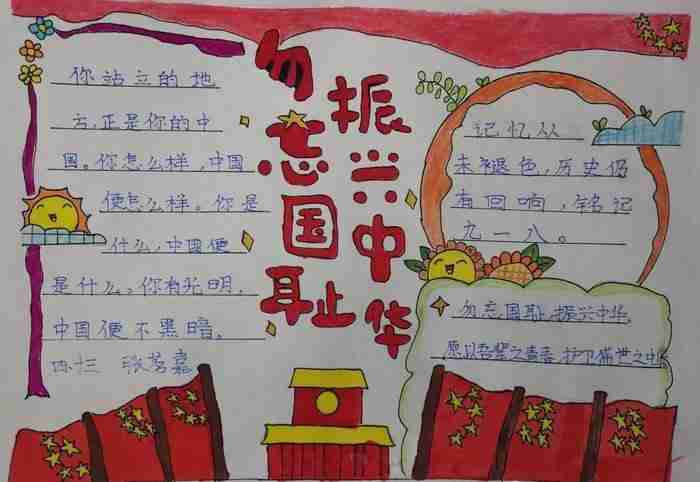 勿忘国耻
振兴中华
你站立的地
方,正是你的中
国。你怎么样,中国
便怎么样。你是
什么,中国便
是什么。你有光明,
中国便不黑暗。
四.三 张茗嘉
记忆从
未褪色,历史仍
有回响,铭记
九一八。
勿忘国耻,振兴中华,
愿以吾辈之青春,护卫盛世之中